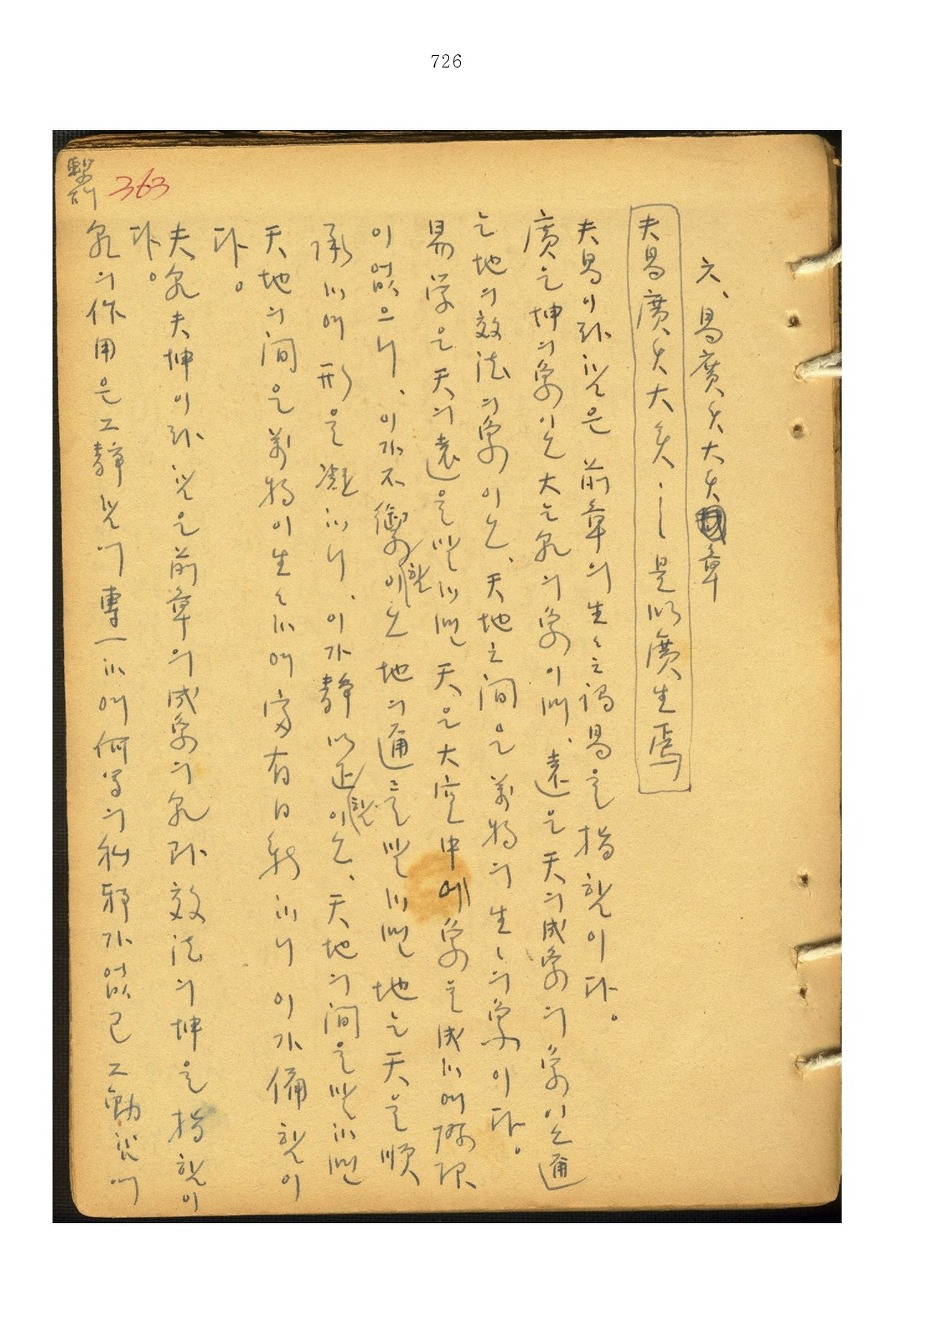 726
繫辞
363
六、易廣矣大矣章
夫易廣矣大矣 ・ 〡 是以廣生焉
夫易이라 함은 前章의 生々之謂易을 指함이다。
廣은 坤의 象이오 大는 乾의 象이며、遠은 天의 成象의 象이오 通
은 地의 效法의 象이오、天地之間은 萬物의 生々의 象이다。
易学은 天의 遠을 말하면 天은 大空中에 象을 成하여 限
이 없으니、이가 不禦 이오 地의 通을 말하면 地는 天을 順
承하여 形을 凝하니、이가 靜以正 이오、天地의 間을 말하면
天地의 間은 萬物이 生々하여 富有日新하니 이가 備 이
다。
夫乾夫坤이라 함은 前章의 成象의 乾과 效法의 坤을 指함이
다。
乾의 作用은 그 靜 에 專一하여 何等의 私邪가 없고 그 動 에